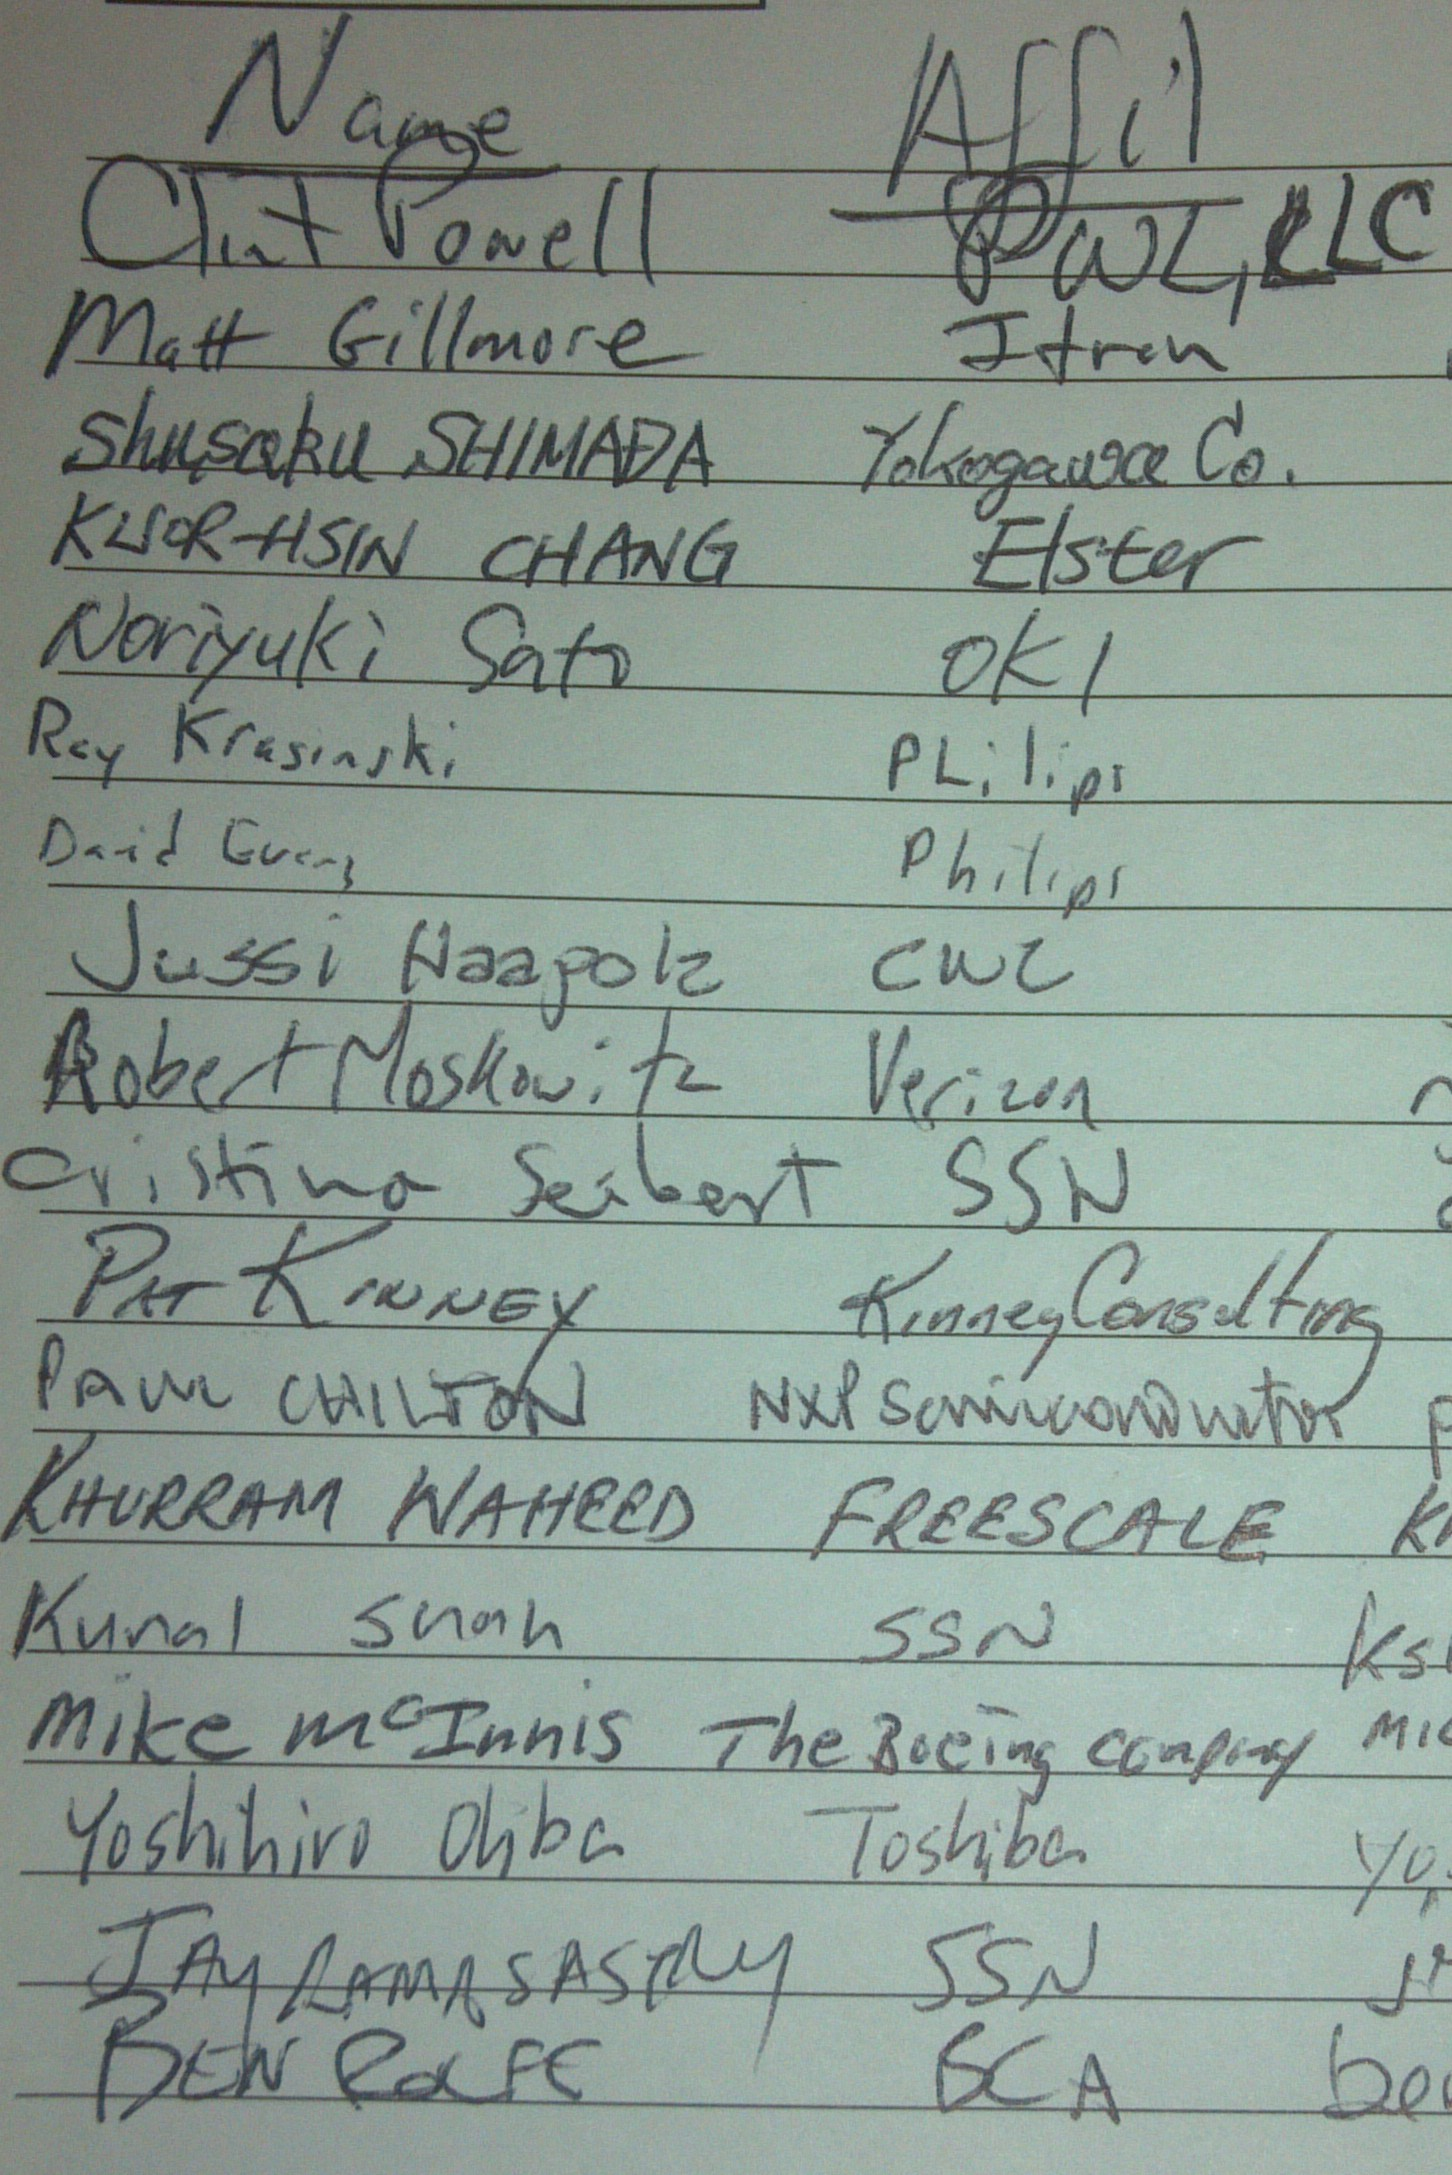 Name Affil
Clint Powell PWC, LLC
Matt Gillmore Itron
Shusaku SHIMADA Yokogawa Co.
KUOR-HSIN CHANG Elster
Noriyuki Sato OKI
Ray Krasinski PhiLips
David Evans Philips
Jussi Haapola CWC
Robert Moskowitz Verizon
Cristina Seibert SSN
PAT KINNEY Kinney Consulting
PAUL CHILTON NXP Semiconductor P
KHURRAM WAHEED FREESCALE Kh
Kunal Shah SSN ksh
Mike McInnis The Boeing Company mic
Yoshihiro Ohba Toshiba yo
JAY RAMASASTRY SSN jr
BEN ROLFE BCA ben